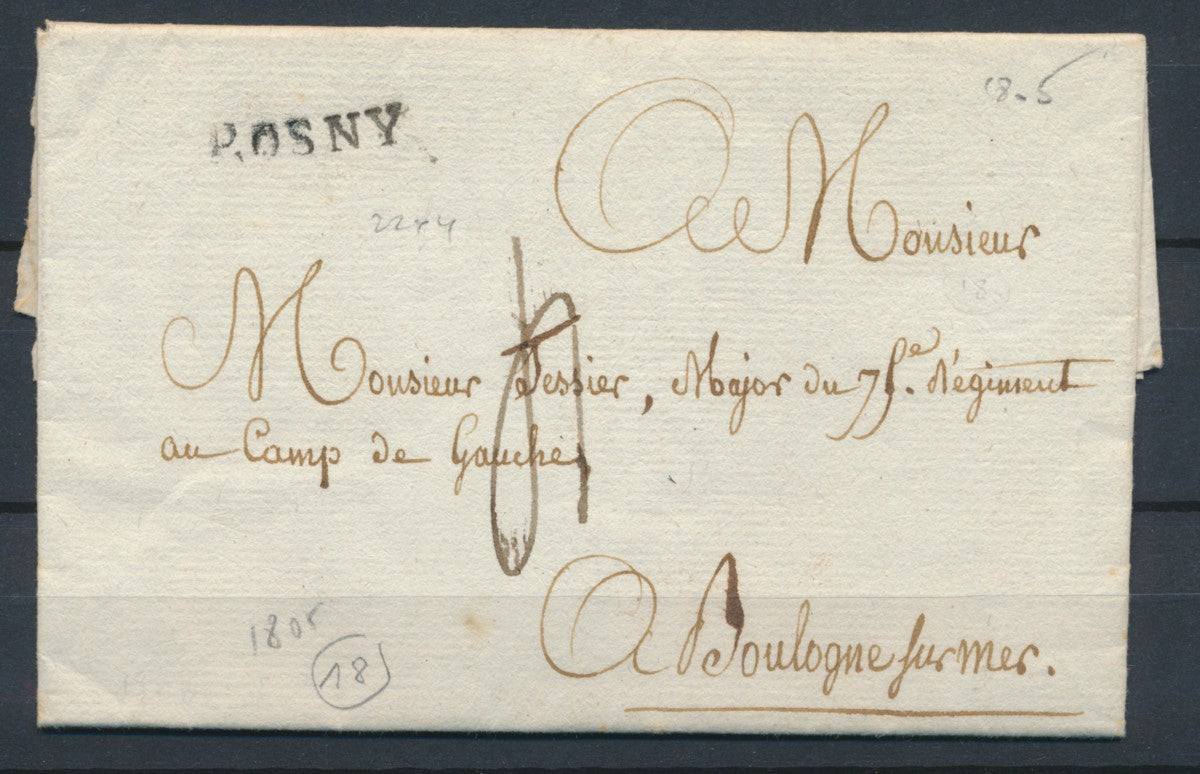 ROSNY
18-5
A Monsieur
2244
Monsieur Tessier, Major du 75.e Régiment
au Camp de Gauche,
A Boulogne sur mer.
1805
18